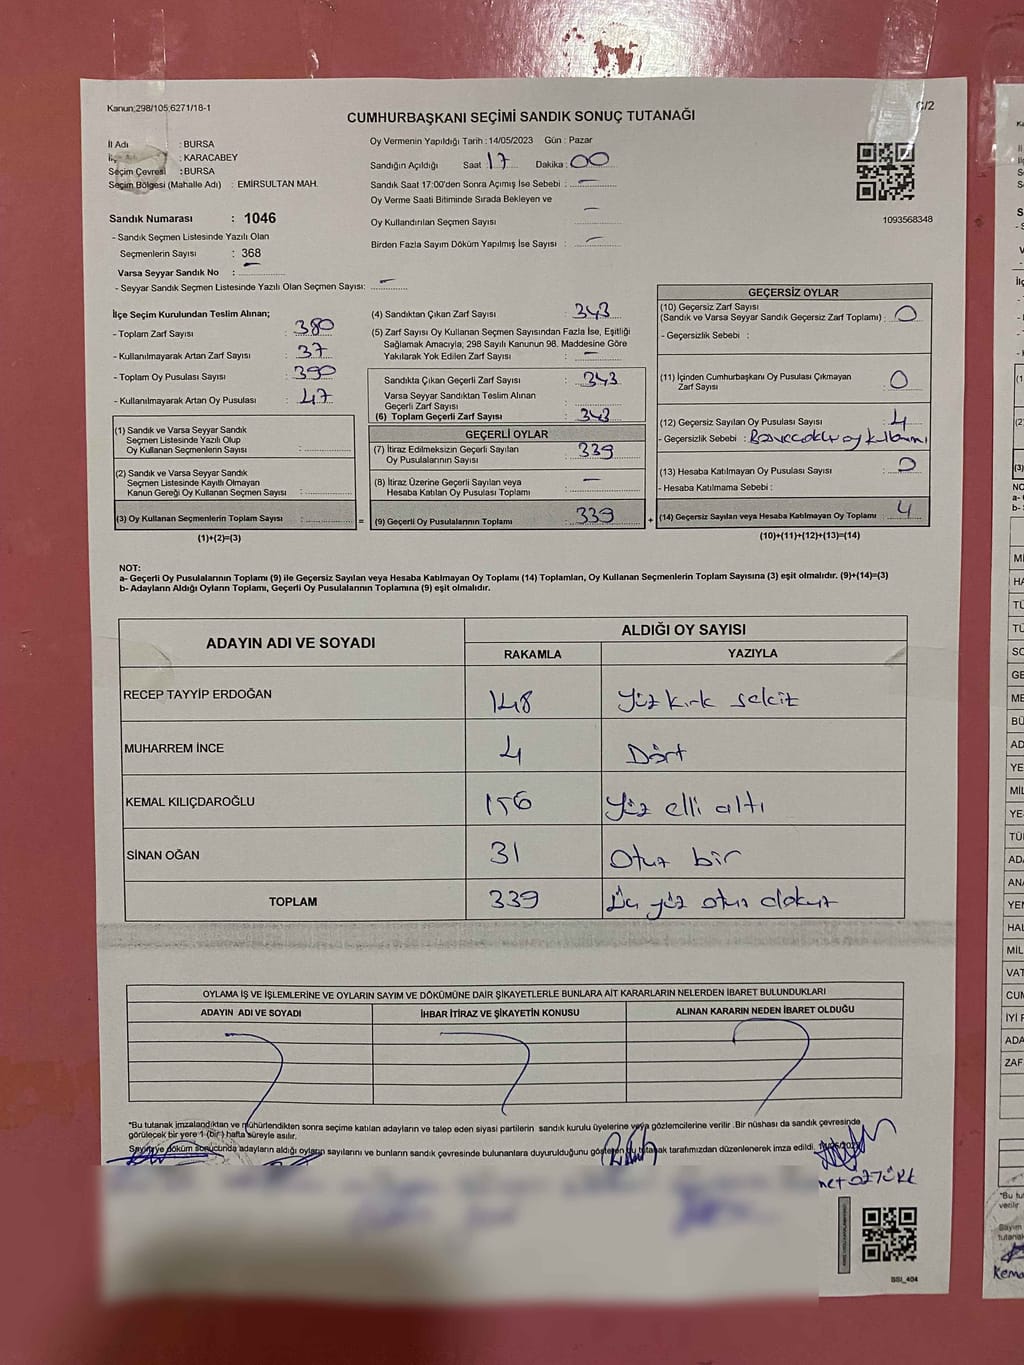 Kanun;298/105;6271/18-1
C/2
CUMHURBAŞKANI SEÇİMİ SANDIK SONUÇ TUTANAĞI
İl Adı : BURSA
: KARACABEY
Seçim Çevresi : BURSA
Seçim Bölgesi (Mahalle Adı) : EMİRSULTAN MAH.
Oy Vermenin Yapıldığı Tarih : 14/05/2023 Gün : Pazar
Sandığın Açıldığı Saat 17 Dakika : 00
Sandık Saat 17:00'den Sonra Açımış İse Sebebi : —
Oy Verme Saati Bitiminde Sırada Bekleyen ve
Oy Kullandırılan Seçmen Sayısı —
Birden Fazla Sayım Döküm Yapılmış İse Sayısı : —
1093568348
Sandık Numarası : 1046
- Sandık Seçmen Listesinde Yazılı Olan
Seçmenlerin Sayısı : 368
Varsa Seyyar Sandık No : —
- Seyyar Sandık Seçmen Listesinde Yazılı Olan Seçmen Sayısı: —
İlçe Seçim Kurulundan Teslim Alınan;
- Toplam Zarf Sayısı : 380
- Kullanılmayarak Artan Zarf Sayısı : 37
- Toplam Oy Pusulası Sayısı : 390
- Kullanılmayarak Artan Oy Pusulası : 47
(1) Sandık ve Varsa Seyyar Sandık
Seçmen Listesinde Yazılı Olup
Oy Kullanan Seçmenlerin Sayısı :
(2) Sandık ve Varsa Seyyar Sandık
Seçmen Listesinde Kayıtlı Olmayan
Kanun Gereği Oy Kullanan Seçmen Sayısı :
(3) Oy Kullanan Seçmenlerin Toplam Sayısı :
=
(1)+(2)=(3)
(4) Sandıktan Çıkan Zarf Sayısı : 343
(5) Zarf Sayısı Oy Kullanan Seçmen Sayısından Fazla İse, Eşitliği
Sağlamak Amacıyla; 298 Sayılı Kanunun 98. Maddesine Göre
Yakılarak Yok Edilen Zarf Sayısı : —
Sandıkta Çıkan Geçerli Zarf Sayısı : 343
Varsa Seyyar Sandıktan Teslim Alınan
Geçerli Zarf Sayısı :
(6) Toplam Geçerli Zarf Sayısı : 343
GEÇERLİ OYLAR
(7) İtiraz Edilmeksizin Geçerli Sayılan
Oy Pusulalarının Sayısı : 339
(8) İtiraz Üzerine Geçerli Sayılan veya
Hesaba Katılan Oy Pusulası Toplamı : —
(9) Geçerli Oy Pusulalarının Toplamı : 339
+
GEÇERSİZ OYLAR
(10) Geçersiz Zarf Sayısı
(Sandık ve Varsa Seyyar Sandık Geçersiz Zarf Toplamı) : 0
- Geçersizlik Sebebi :
(11) İçinden Cumhurbaşkanı Oy Pusulası Çıkmayan
Zarf Sayısı : 0
(12) Geçersiz Sayılan Oy Pusulası Sayısı : 4
- Geçersizlik Sebebi : oy
(13) Hesaba Katılmayan Oy Pusulası Sayısı : 0
- Hesaba Katılmama Sebebi :
(14) Geçersiz Sayılan veya Hesaba Katılmayan Oy Toplamı : 4
(10)+(11)+(12)+(13)=(14)
NOT:
a- Geçerli Oy Pusulalarının Toplamı (9) ile Geçersiz Sayılan veya Hesaba Katılmayan Oy Toplamı (14) Toplamları, Oy Kullanan Seçmenlerin Toplam Sayısına (3) eşit olmalıdır. (9)+(14)=(3)
b- Adayların Aldığı Oyların Toplamı, Geçerli Oy Pusulalarının Toplamına (9) eşit olmalıdır.
ADAYIN ADI VE SOYADI
ALDIĞI OY SAYISI
RAKAMLA YAZIYLA
RECEP TAYYİP ERDOĞAN 148 Yüz kırk sekiz
MUHARREM İNCE 4 Dört
KEMAL KILIÇDAROĞLU 156 Yüz elli altı
SİNAN OĞAN 31 Otuz bir
TOPLAM 339 Üç yüz otuz dokuz
OYLAMA İŞ VE İŞLEMLERİNE VE OYLARIN SAYIM VE DÖKÜMÜNE DAİR ŞİKAYETLERLE BUNLARA AİT KARARLARIN NELERDEN İBARET BULUNDUKLARI
ADAYIN ADI VE SOYADI İHBAR İTİRAZ VE ŞİKAYETİN KONUSU ALINAN KARARIN NEDEN İBARET OLDUĞU
*Bu tutanak imzalandıktan ve mühürlendikten sonra seçime katılan adayların ve talep eden siyasi partilerin sandık kurulu üyelerine veya gözlemcilerine verilir. Bir nüshası da sandık çevresinde
görülecek bir yere 1 (bir) hafta süreyle asılır.
Sayım ve döküm sonucunda adayların aldığı oyların sayılarını ve bunların sandık çevresinde bulunanlara duyurulduğunu gösteren bu tutanak tarafımızdan düzenlenerek imza edildi.
met ÖZTÜRK
BSI_404